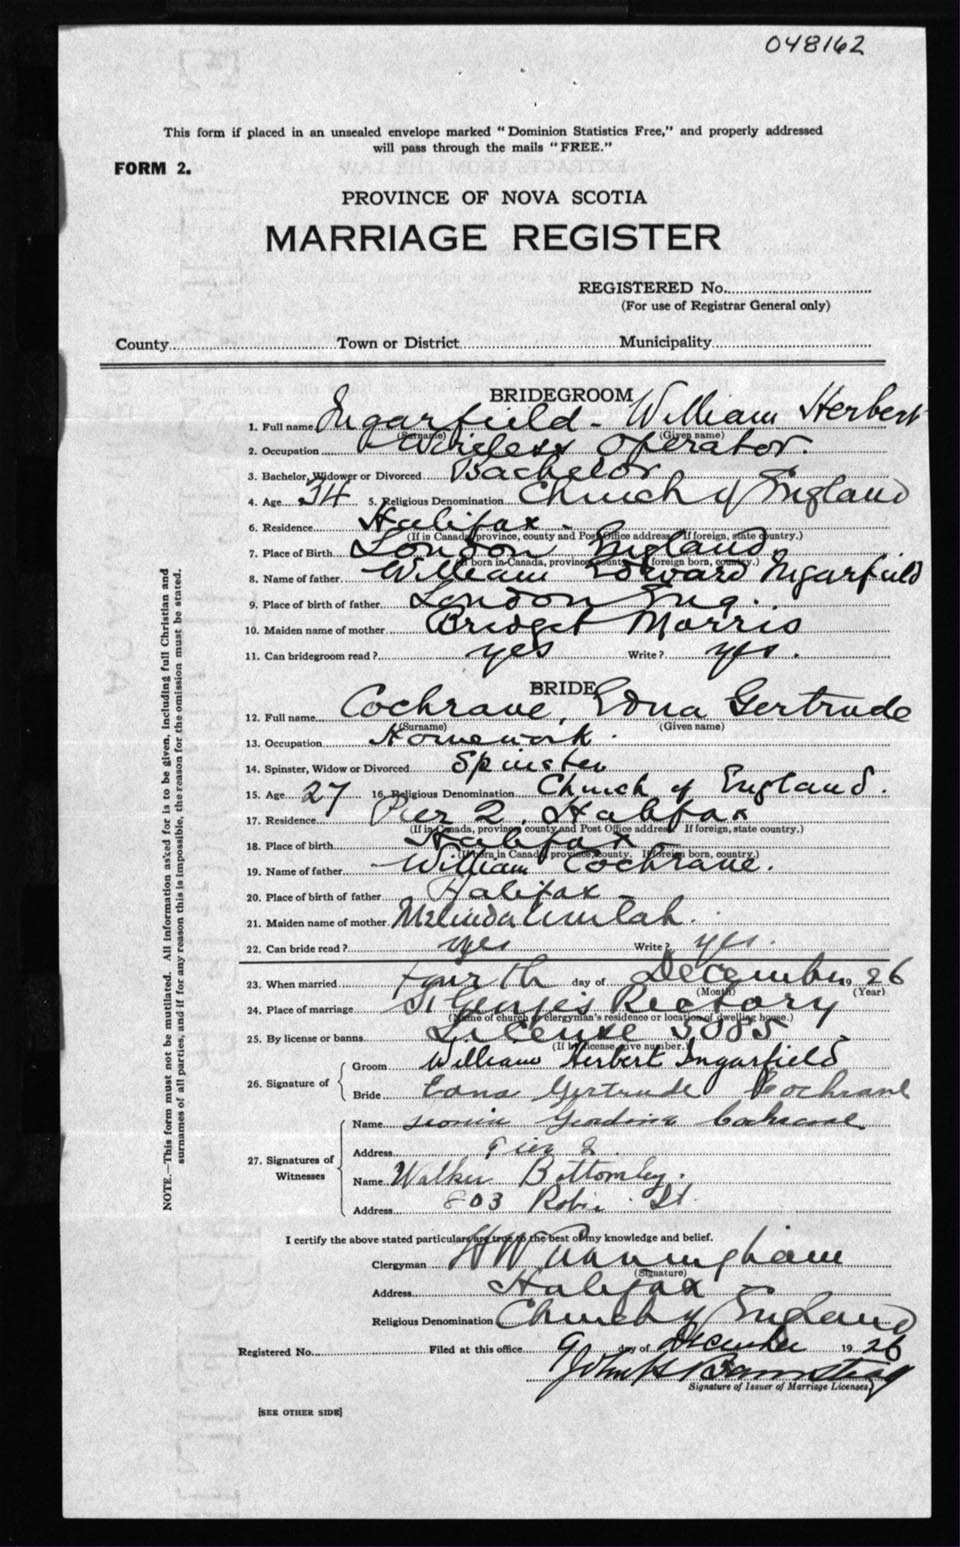 048162
This form if placed in an unsealed envelope marked "Dominion Statistics Free," and properly addressed
will pass through the mails "FREE."
FORM 2.
PROVINCE OF NOVA SCOTIA
MARRIAGE REGISTER
REGISTERED No.
(For use of Registrar General only)
County Town or District Municipality
BRIDEGROOM
1. Full name Ingarfield - William Herbert
(Surname) (Given name)
2. Occupation Wireless Operator.
3. Bachelor, Widower or Divorced Bachelor
4. Age 34 5. Religious Denomination Church of England
6. Residence Halifax.
(If in Canada, province, county and Post Office address. If foreign, state country.)
7. Place of Birth London England.
(If born in Canada, province, county. If foreign born, country.)
8. Name of father William Edward Ingarfield
9. Place of birth of father London Eng.
10. Maiden name of mother Bridget Morris
11. Can bridegroom read? yes Write? yes.
BRIDE
12. Full name Cochrane, Edna Gertrude
(Surname) (Given name)
13. Occupation Homework.
14. Spinster, Widow or Divorced Spinster
15. Age 27 16. Religious Denomination Church of England.
17. Residence Pier 2, Halifax
(If in Canada, province, county and Post Office address. If foreign, state country.)
18. Place of birth Halifax
(If born in Canada, province, county. If foreign born, country.)
19. Name of father William Cochrane.
20. Place of birth of father Halifax
21. Maiden name of mother Melinda
22. Can bride read? yes Write? yes.
23. When married fourth day of December 1926
(Month) (Year)
24. Place of marriage St George's Rectory
(Name of church or clergyman's residence or location of dwelling house.)
25. By license or banns License 5085
(If by license give number.)
26. Signature of Groom William Herbert Ingarfield
Bride Edna Gertrude Cochrane
27. Signatures of Witnesses Name Cochrane
Address Pier 2
Name Walker Bottomley.
Address 803 Robie St
I certify the above stated particulars are true to the best of my knowledge and belief.
Clergyman H W Cunningham
(Signature)
Address Halifax
Religious Denomination Church of England
Registered No. Filed at this office 9 day of December 1926
John H
Signature of Issuer of Marriage Licenses
[SEE OTHER SIDE]
NOTE.—This form must not be mutilated. All information asked for is to be given, including full Christian and
surnames of all parties, and if for any reason this is impossible, the reason for the omission must be stated.